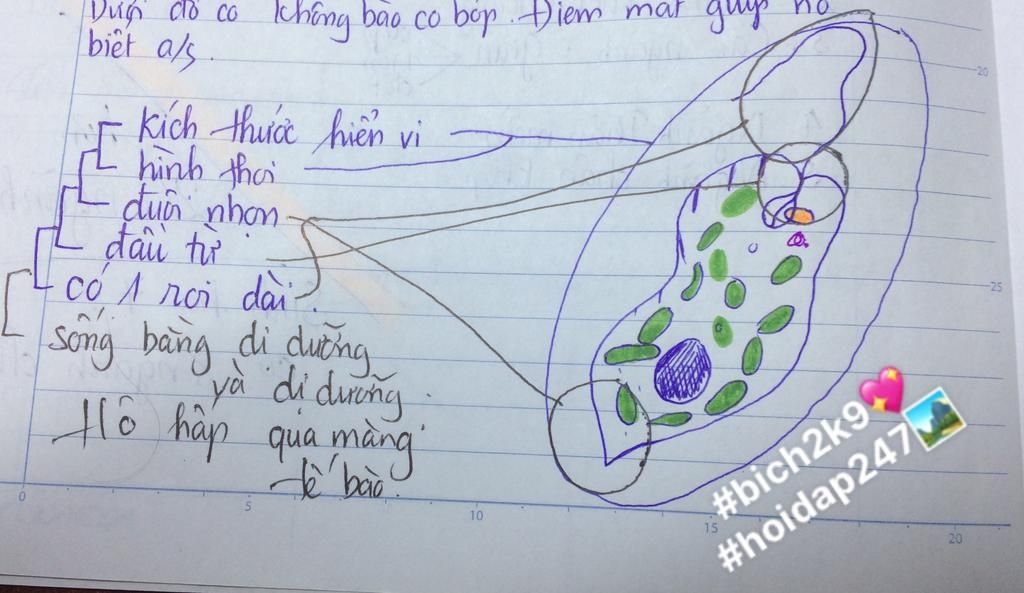 Dưới đó có không bào co bóp. Điểm mắt giúp nó
biết a/s.
kích thước hiển vi
hình thoi
đuôi nhọn
đầu tù
có 1 roi dài
sống bằng dị dưỡng
và dị dưỡng.
Hô hấp qua màng
tế bào.
#bich2k9
#hoidap247
20
25
0
5
10
15
20